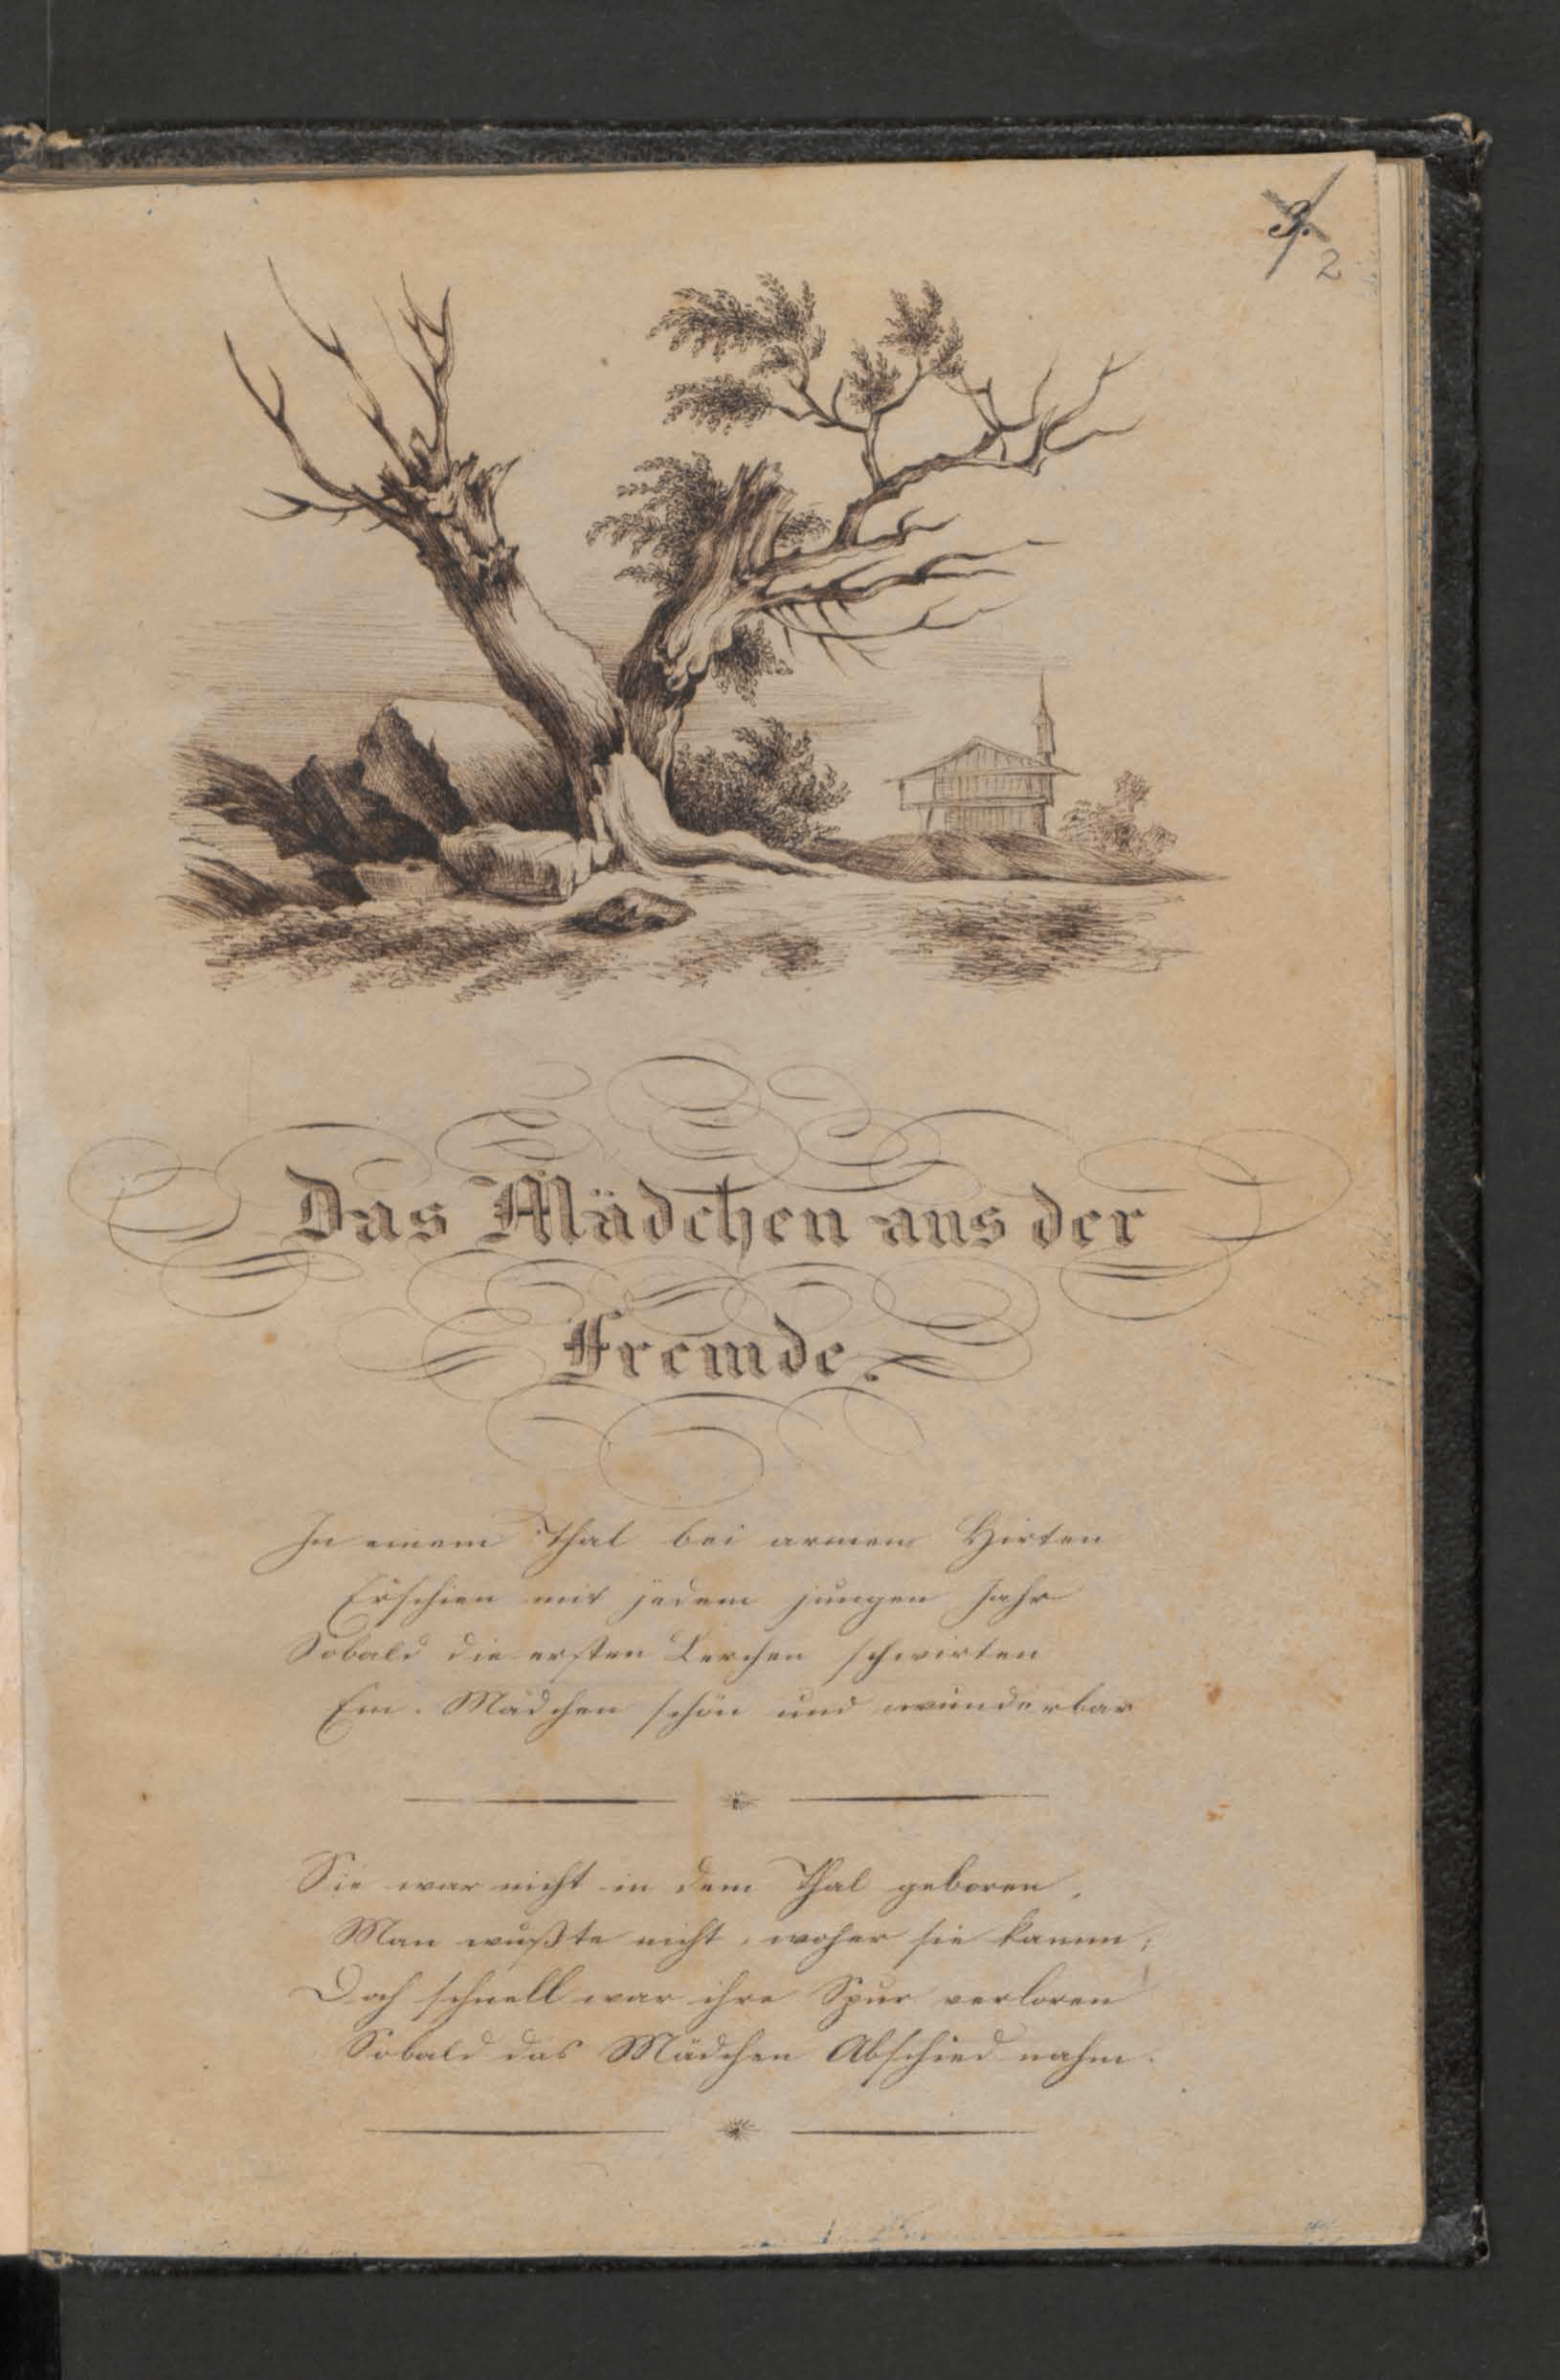 3.
2
Das Mädchen aus der
Fremde.
In einem Thal bei armen Hirten
Erschien mit jedem jungen Jahr
Sobald die ersten Lerchen schwirten
Ein Mädchen schön und wunderbar
Sie war nicht in dem Thal geboren,
Man wußte nicht, woher sie kamm;
Doch schnell war ihre Spur verloren
Sobald das Mädchen Abschied nahm.